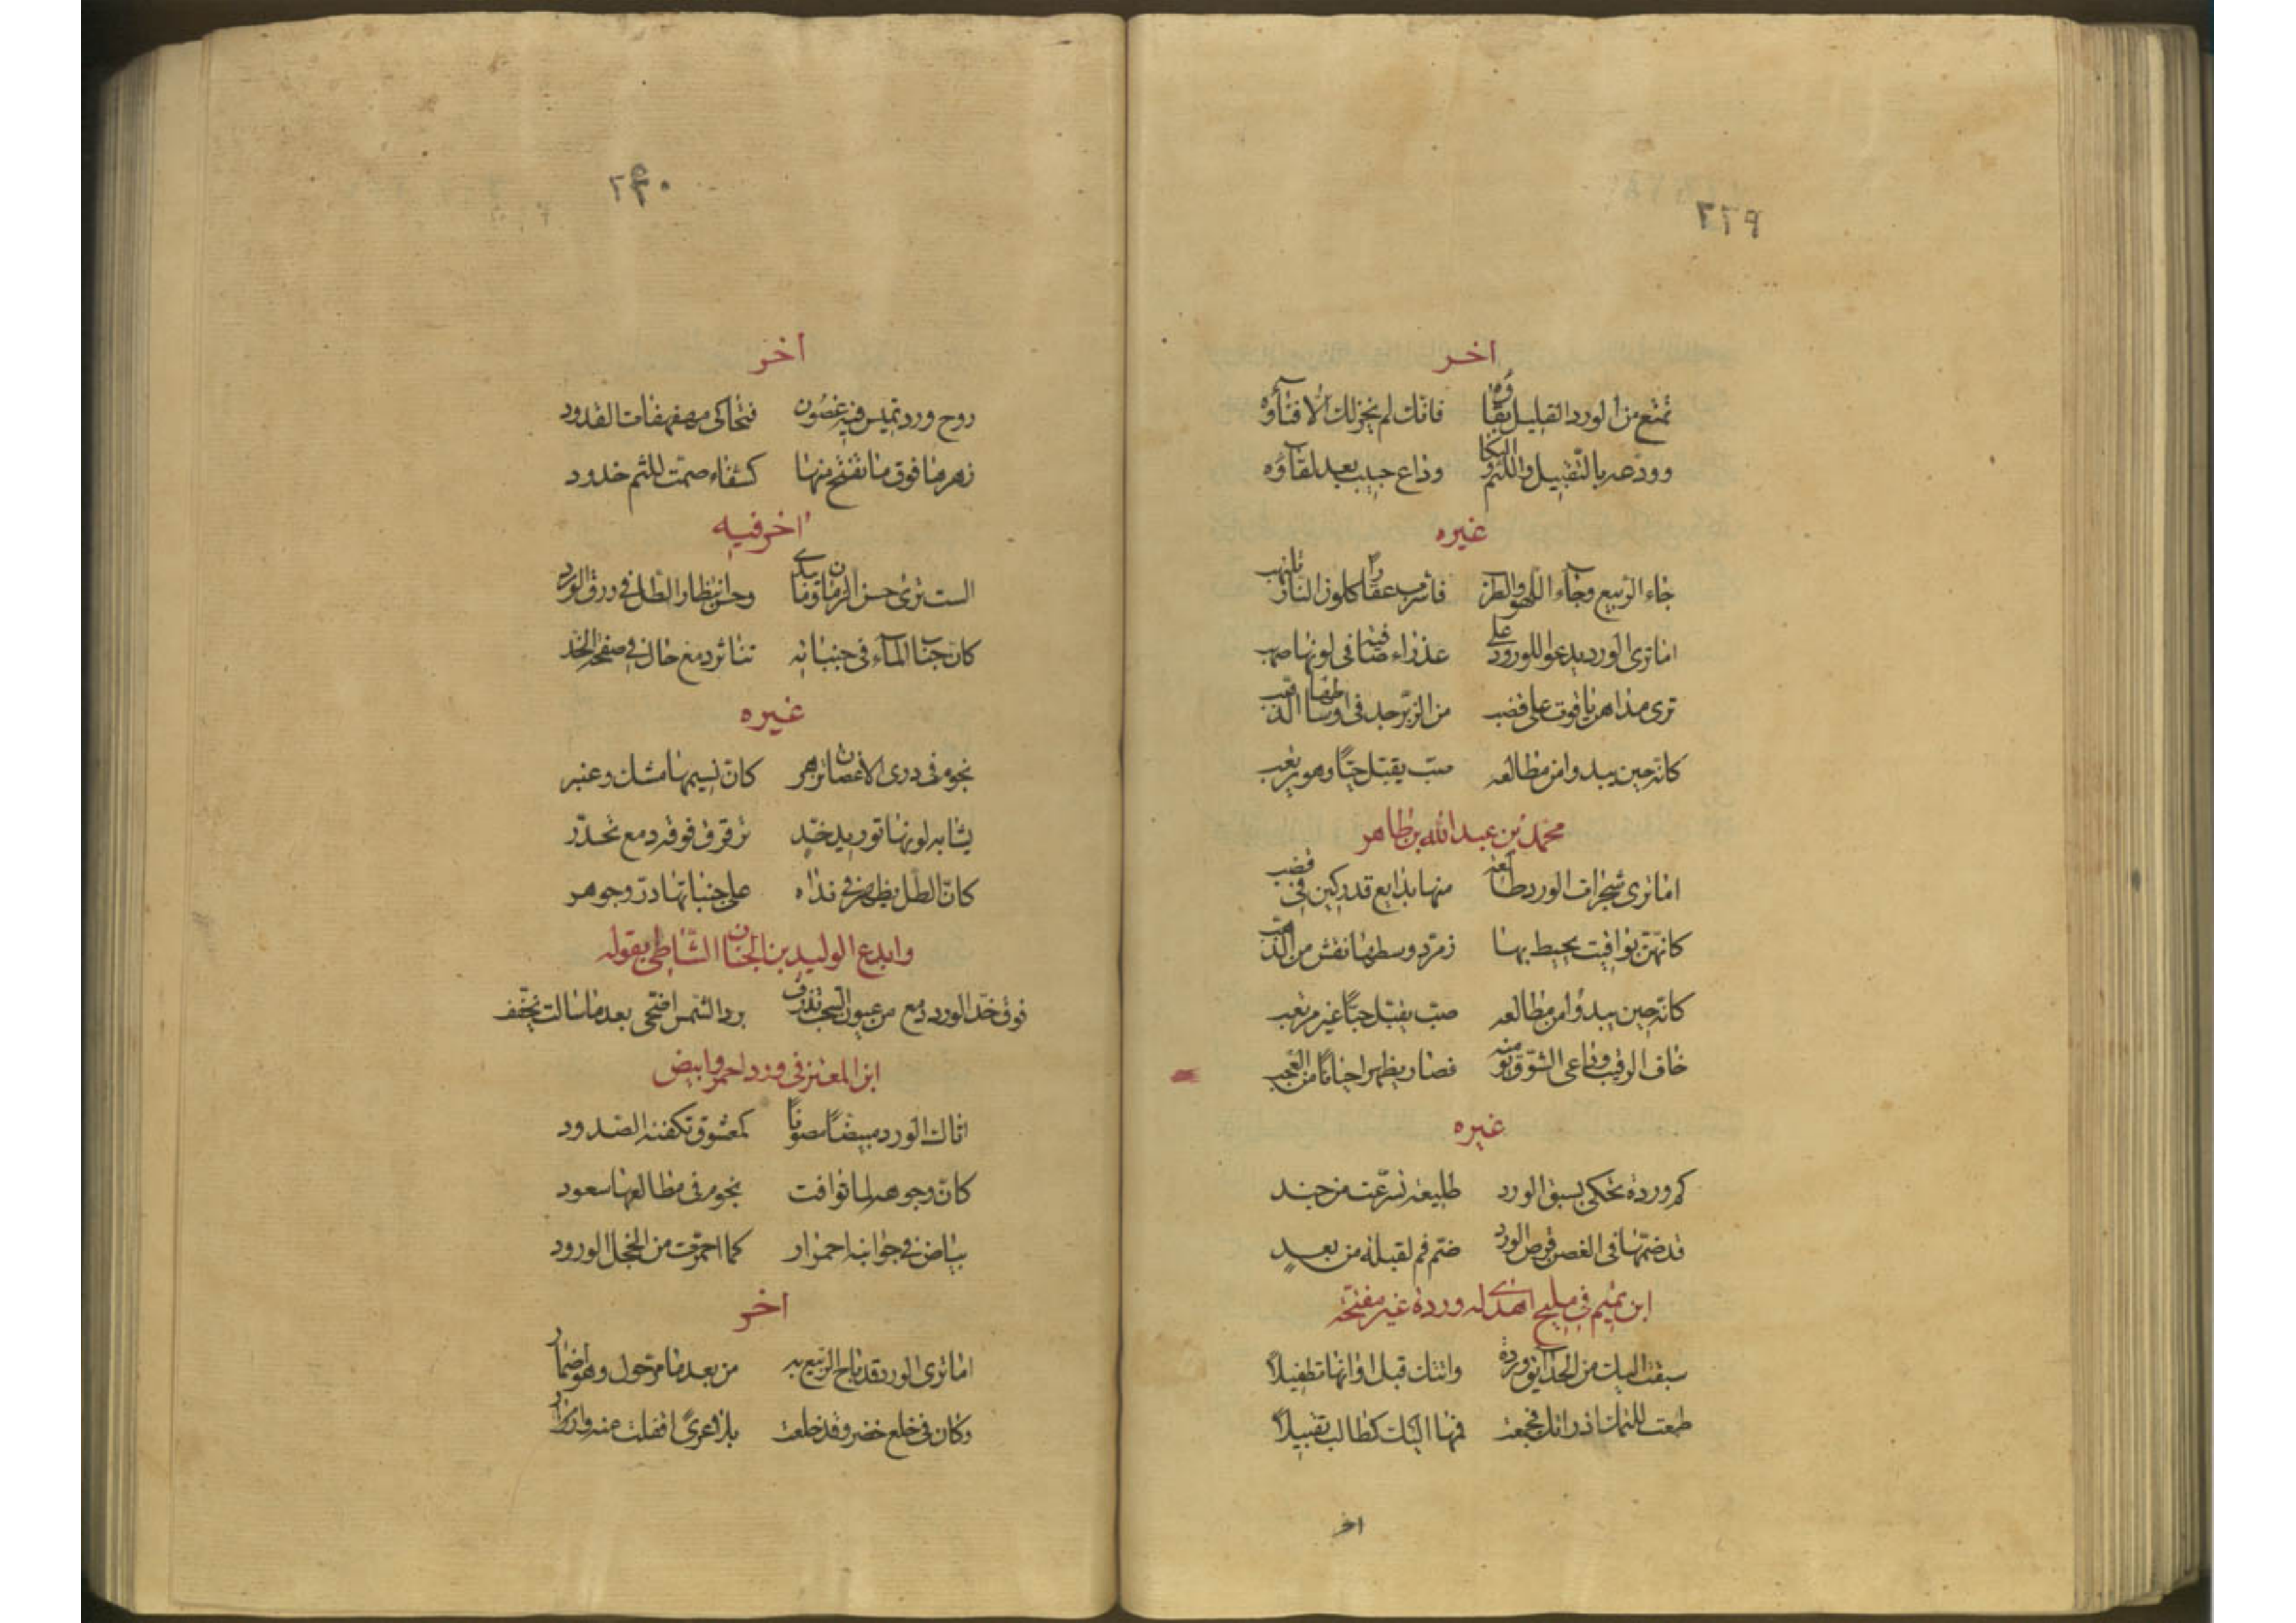 ٢٣٩
اخر
تمتع من الورد القليل بقاؤه فانك لم يحزنك الا فناؤه
وودعه بالتقبيل واللثم والبكا وداع حبيب بعد لقاؤه
غيره
جاء الربيع وجاء اللهو والطرب فاشرب عقارا كلون النار تلتهب
اما ترى الورد يدعو للورود على عذراء صافية في لونها صهب
ترى مداهن ياقوت على قضب من الزبرجد في اوساطها الذهب
كانه حين يبدو من مطالعه صب يقبل حبا وهو يرتغب
محمد بن عبد الله بن طاهر
اما ترى شجرات الورد طالعة منها بدايع قد ركبن في قضب
كانهن يواقيت يحيط بها زمرد وسطها نقش من الذهب
كانه حين يبدو من مطالعه صب يقبل حبا غير مرتغب
خاف الرقيب فصار يظهر احيانا من
غيره
كم وردة تحكي بسبق الورد طليعة تسرعت من جند
قد ضمها في الغصن قرص البرد ضم فم لقبلة من بعد
ابن تميم في مليح اهدى له وردة غير مفتحة
سبقت اليك من الحدايق وردة واتتك قبل اوانها تطفيلا
طمعت بلثمك اذ راتك فجمعت فمها اليك كطالب تقبيلا
اخر
٢٤٠
اخر
دوح ورد تميس فيه غصون فتحاكي مهفهفات القدود
زهرها فوق ما تفتح منها كشفاه ضمت للثم خدود
اخر فيه
الست ترى حسن الزمان وما يبدي وحسن انتظار الطل في ورق الورد
كان حباب الماء في جنباته تناثر دمع خال في صفحة الخد
غيره
نجوم في ذرى الاغصان تزهر كان نسيمها مسك وعنبر
يشابه لونها توريد خد ترقرق فوقه دمع تحدر
كان الطل يظهر في نداه على جنباتها در وجوهر
وابدع الوليد بن الجنان الشاطبي بقوله
فوق خد الورد دمع من عيون السحب تذرف برد الشمس اضحى بعد ما سالت يجفف
ابن المعتز في ورد احمر وابيض
اتاك الورد مبيضا مصونا كمعشوق تكنفه الصدود
كان وجوهه لما توافت نجوم في مطالعها سعود
بياض في جوانبه احمرار كما احمرت من الخجل الورود
اخر
اما ترى الورد قد باح الربيع به من بعد ما مر حول وهو اضمار
وكان في خلع خضر وقد خلعت منه وازرار